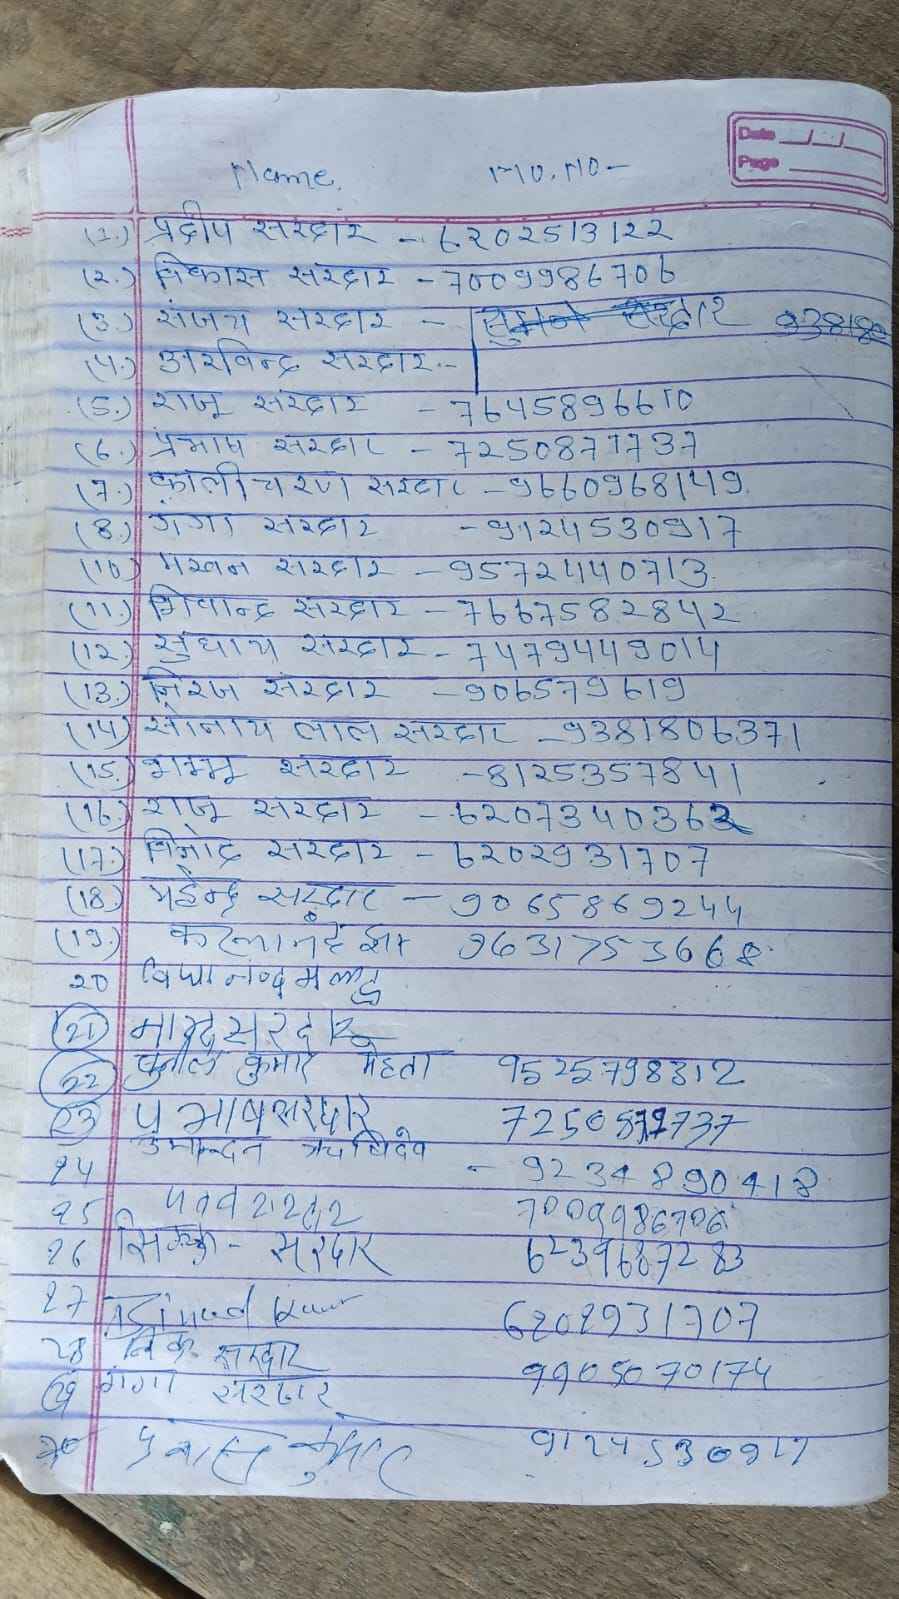 Date
Page
Name. MO. NO-
(1.) प्रदीप सरदार - 6202513122
(2.) विकास सरदार - 7009986706
(3.) संजय सरदार - सुमन सरदार 938180
(4.) अरविन्द सरदार -
(5.) राजू सरदार - 7645896610
(6.) प्रभाष सरदार - 7250877737
(7.) कालीचरण सरदार - 9660968149
(8.) गंगा सरदार - 9124530917
(10) मखन सरदार - 9572440713
(11.) सरदार - 7667582842
(12.) सुधाय सरदार - 7479449014
(13.) निरज सरदार - 906579619
(14) सोनाय लाल सरदार - 9381806371
(15. सरदार - 8125357841
(16.) राजू सरदार - 6207340362
(17.) विनोद सरदार - 6202931707
(18.) महेन्द्र सरदार - 9065869244
(19.) झा 9631753668
20
(21) सरदार
(22) कुमार मेहता 9525798312
(23) प्रभाष सरदार 7250877737
24 ऋषिदेव - 9234890418
25 7009986706
26 सरदार 6239687283
27 6202931707
28 सरदार 9905070174
(29) गंगा सरदार
30 9124530917